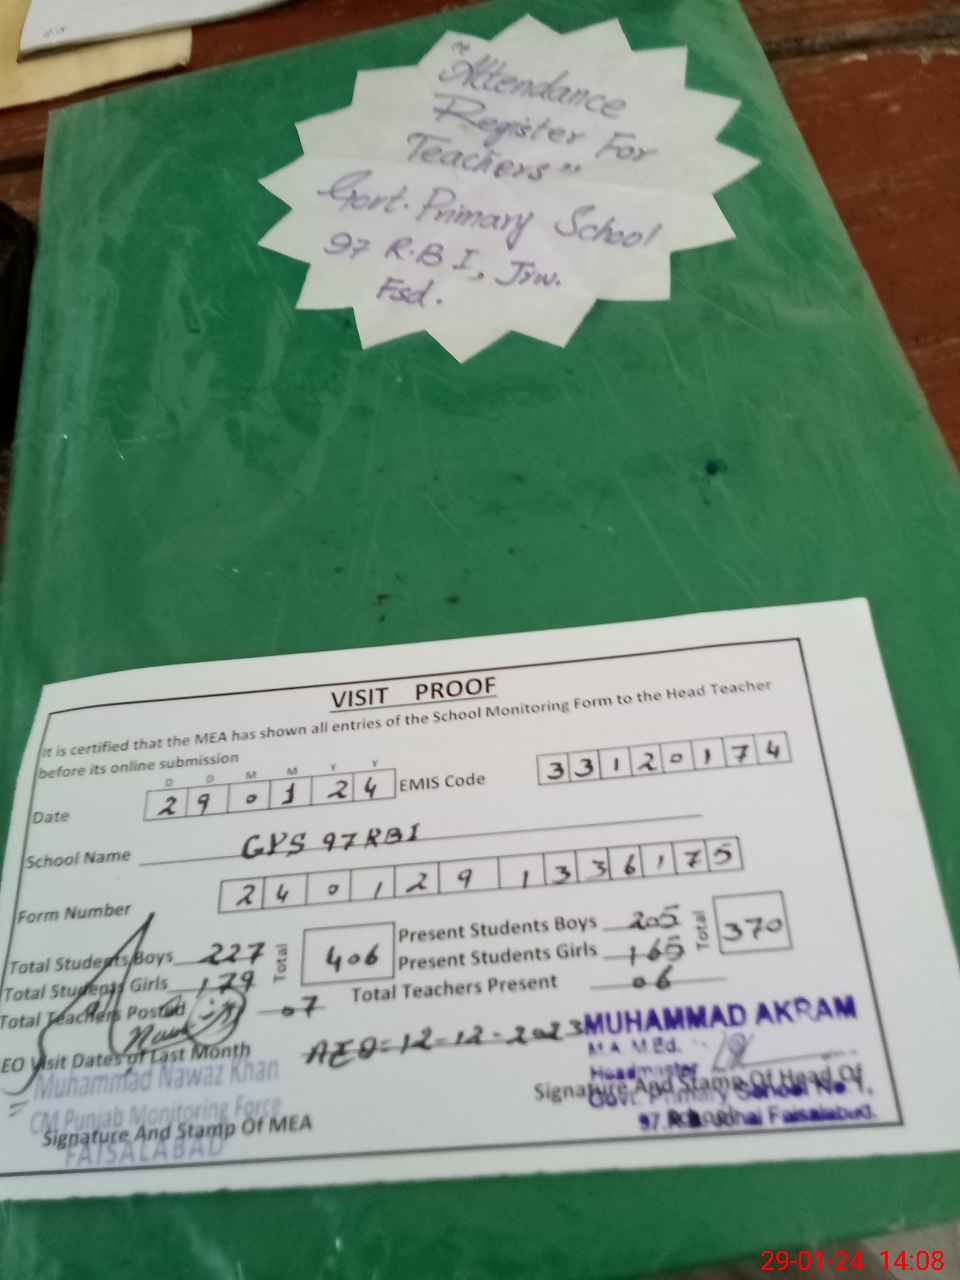 "Attendance
Register For
Teachers"
Govt. Primary School
97 R.B I, Jrw.
Fsd.
VISIT PROOF
It is certified that the MEA has shown all entries of the School Monitoring Form to the Head Teacher
before its online submission
D D M M Y Y
Date 29 01 24 EMIS Code 33120174
School Name GPS 97RBI
Form Number 2401291336175
Total Students Boys 227 Total 406 Present Students Boys 205 Total 370
Total Students Girls 179 Present Students Girls 165
Total Teachers Posted 07 Total Teachers Present 06
EO Visit Dates of Last Month AEO=12-12-2023
MUHAMMAD AKRAM
M.A. M.Ed.
Headmaster
Govt. Primary School No 1,
97. Faisalabad.
Signature And Stamp Of Head Of
Muhammad Nawaz Khan
CM Punjab Monitoring Force
FAISALABAD
Signature And Stamp Of MEA
29-01-24 14:08